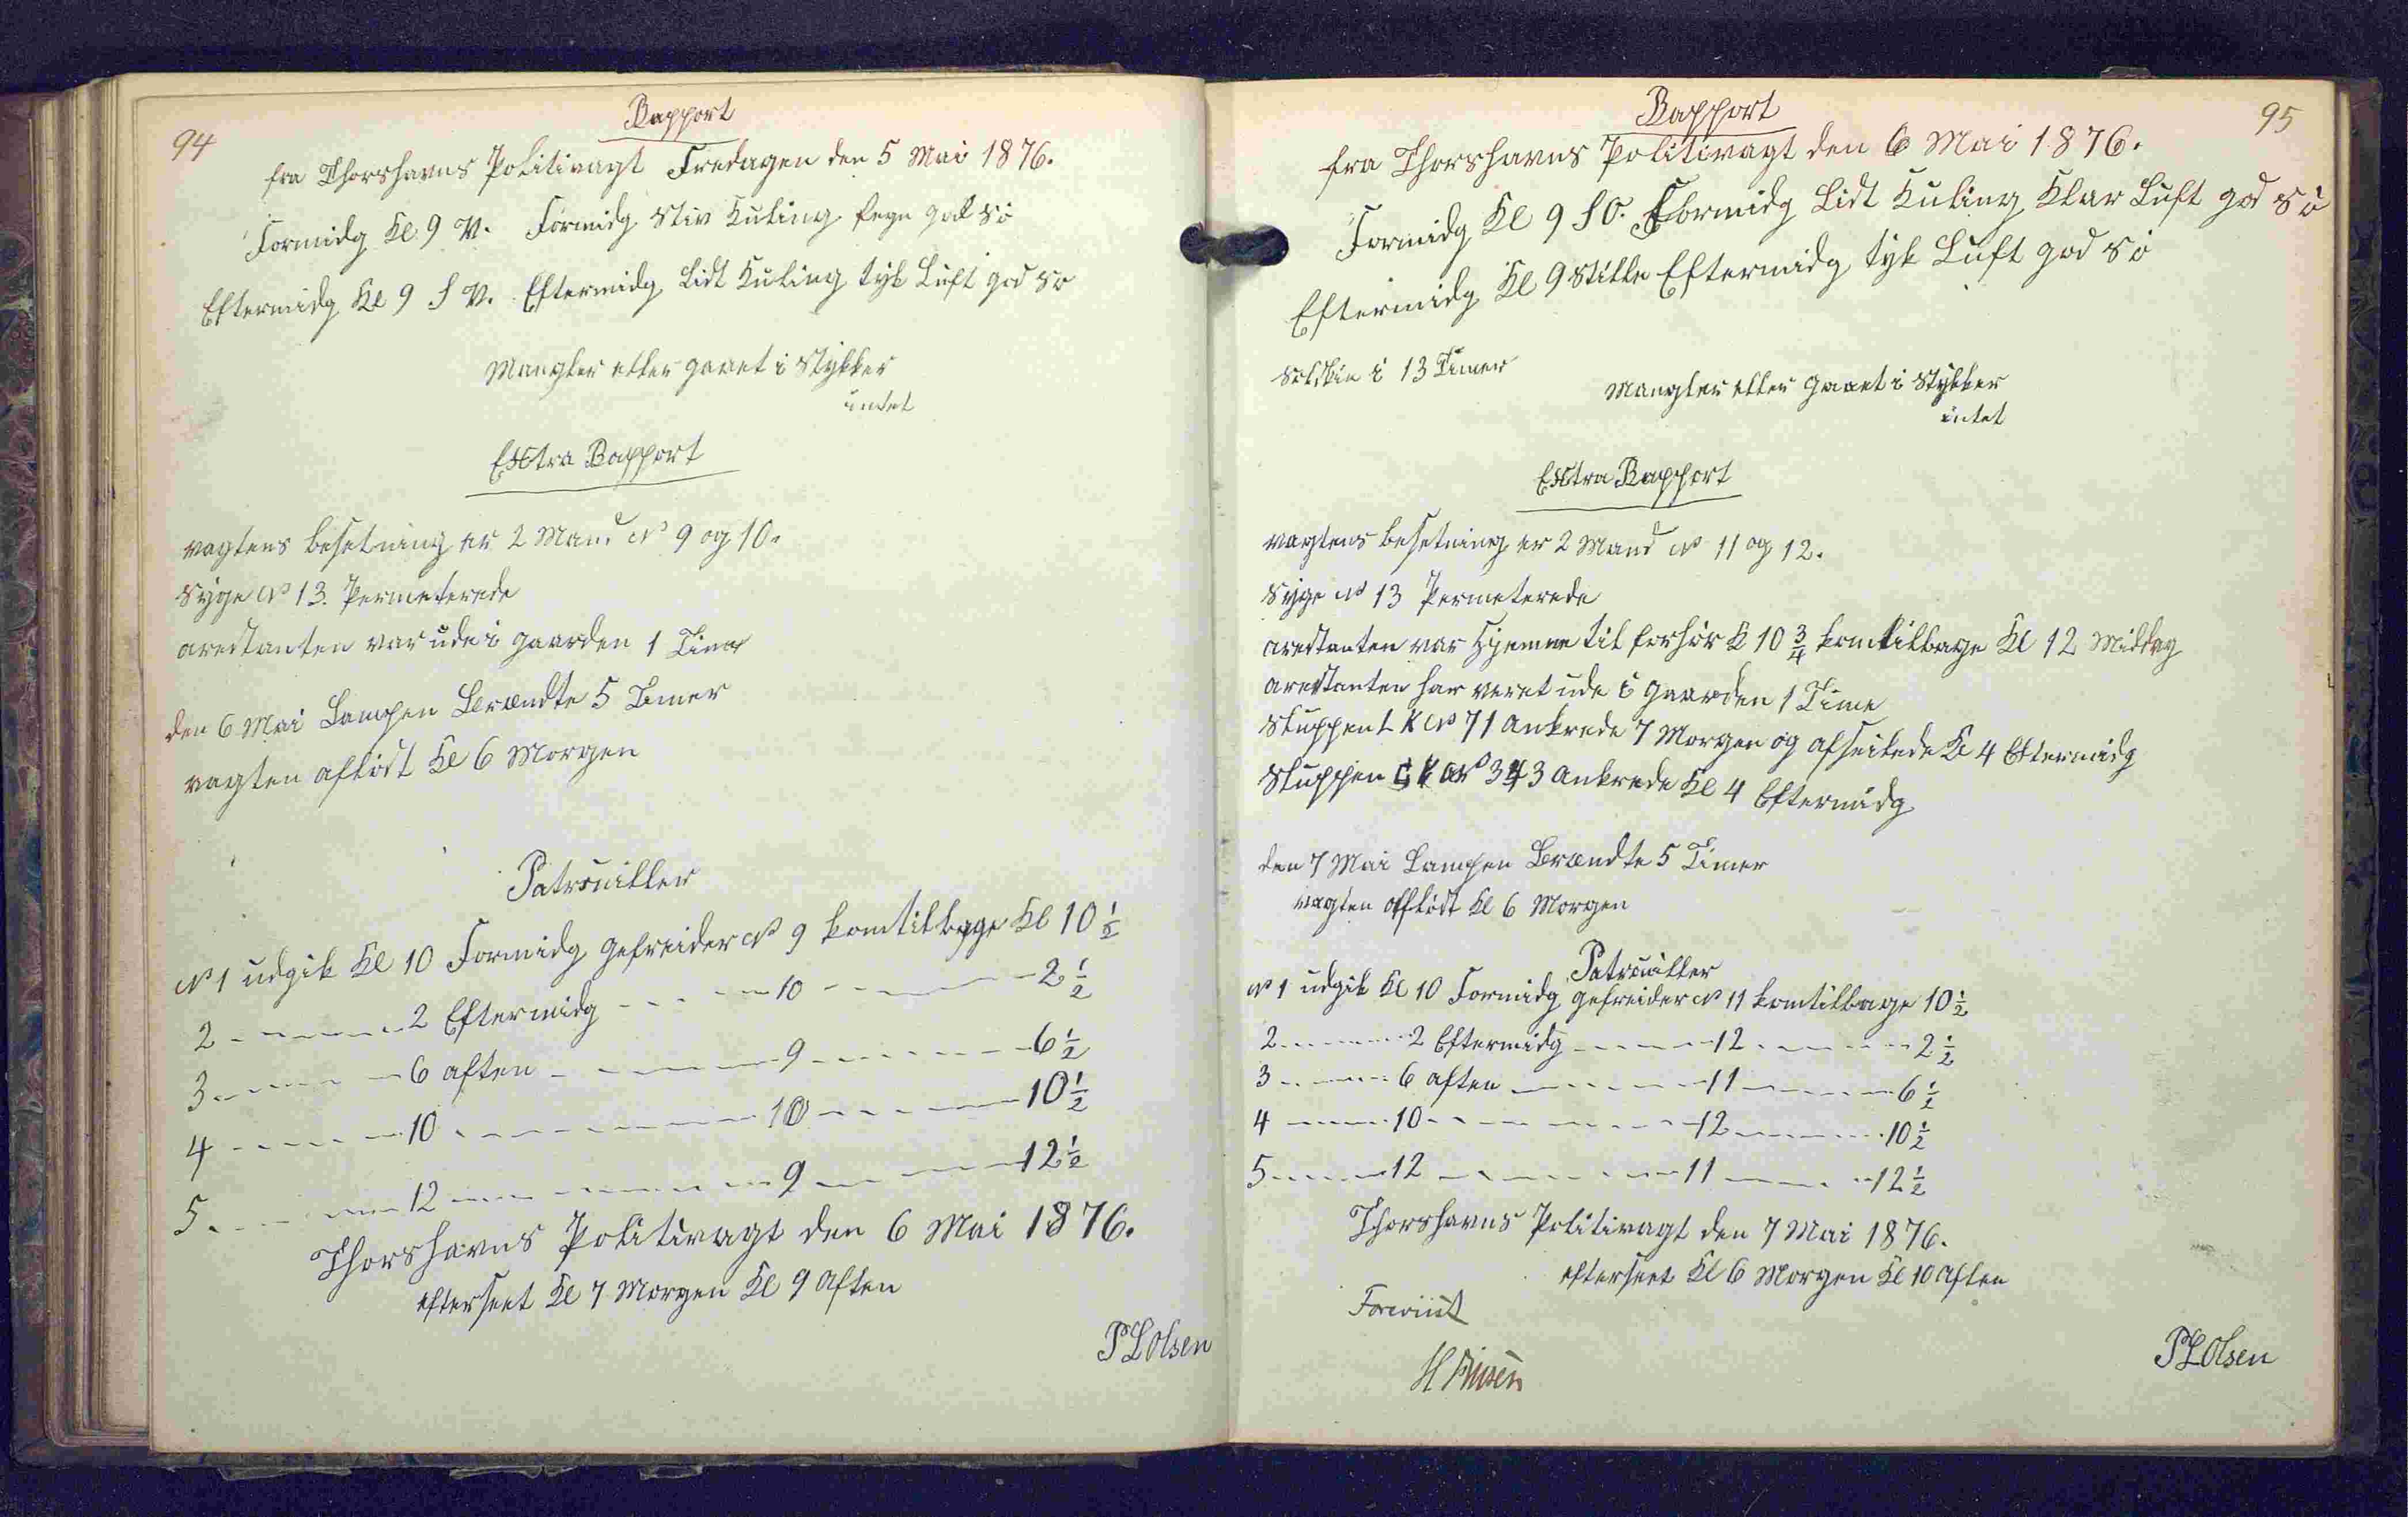 94
Rapport
fra Thorshavns Politivagt Fredagen den 5 Mai 1876.
Formidg Kl 9 V. Formidg Stiv Kuling regn god Sö
Eftermidg Kl 9 S V. Eftermidg Lidt Kuling tyk Luft god Sö
Mangler eller gaaet i Stykker
intet
Extra Rapport
vagtens besetning er 2 Mand No 9 og 10.
Syge No 13. Permeterede
arestanten var ude i gaarden 1 Time
den 6 Mai Lampen Brændte 5 Timer
vagten aflöst Kl 6 Morgen
Patrouiller
No 1 udgik Kl 10 Formidg gefreider No 9 kom tilbage Kl 10 1/2
2 - - - - 2 Eftermidg - - - - 10 - - - - 2 1/2
3 - - - - 6 aften - - - - 9 - - - - 6 1/2
4 - - - - 10 - - - - 10 - - - - 10 1/2
5 - - - - 12 - - - - 9 - - - - 12 1/2
Thorshavns Politivagt den 6 Mai 1876.
efterseet Kl 7 Morgen Kl 9 Aften
P L Olsen
95
Rapport
fra Thorshavns Politivagt den 6 Mai 1876.
Formidg Kl 9 S O. Formidg Lidt Kuling Klar Luft god Sö
Eftermidg Kl 9 Stille Eftermidg tyk Luft god Sö
Solskin i 13 Timer
Mangler eller gaaet i Stykker
intet
Extra Rapport
vagtens besetning er 2 Mand No 11 og 12.
Syge No 13 Permeterede
arestanten var Hjemme til forhör Kl 10 3/4 kom tilbage Kl 12 Middag
arestanten har veret ude i gaarden 1 Time
Sluppen L K No 71 Ankrede 7 Morgen og afseilede Kl 4 Eftermidg
Sluppen G K No 343 Ankrede Kl 4 Eftermidg
den 7 Mai Lampen Brændte 5 Timer
vagten aflöst Kl 6 Morgen
Patrouiller
No 1 udgik Kl 10 Formidg gefreider No 11 kom tilbage 10 1/2
2 - - - - 2 Eftermidg - - - - 12 - - - - 2 1/2
3 - - - - 6 aften - - - - 11 - - - - 6 1/2
4 - - - - 10 - - - - 12 - - - - 10 1/2
5 - - - - 12 - - - - 11 - - - - 12 1/2
Thorshavns Politivagt den 7 Mai 1876.
efterseet Kl 6 Morgen Kl 10 Aften
Foreviist
P L Olsen